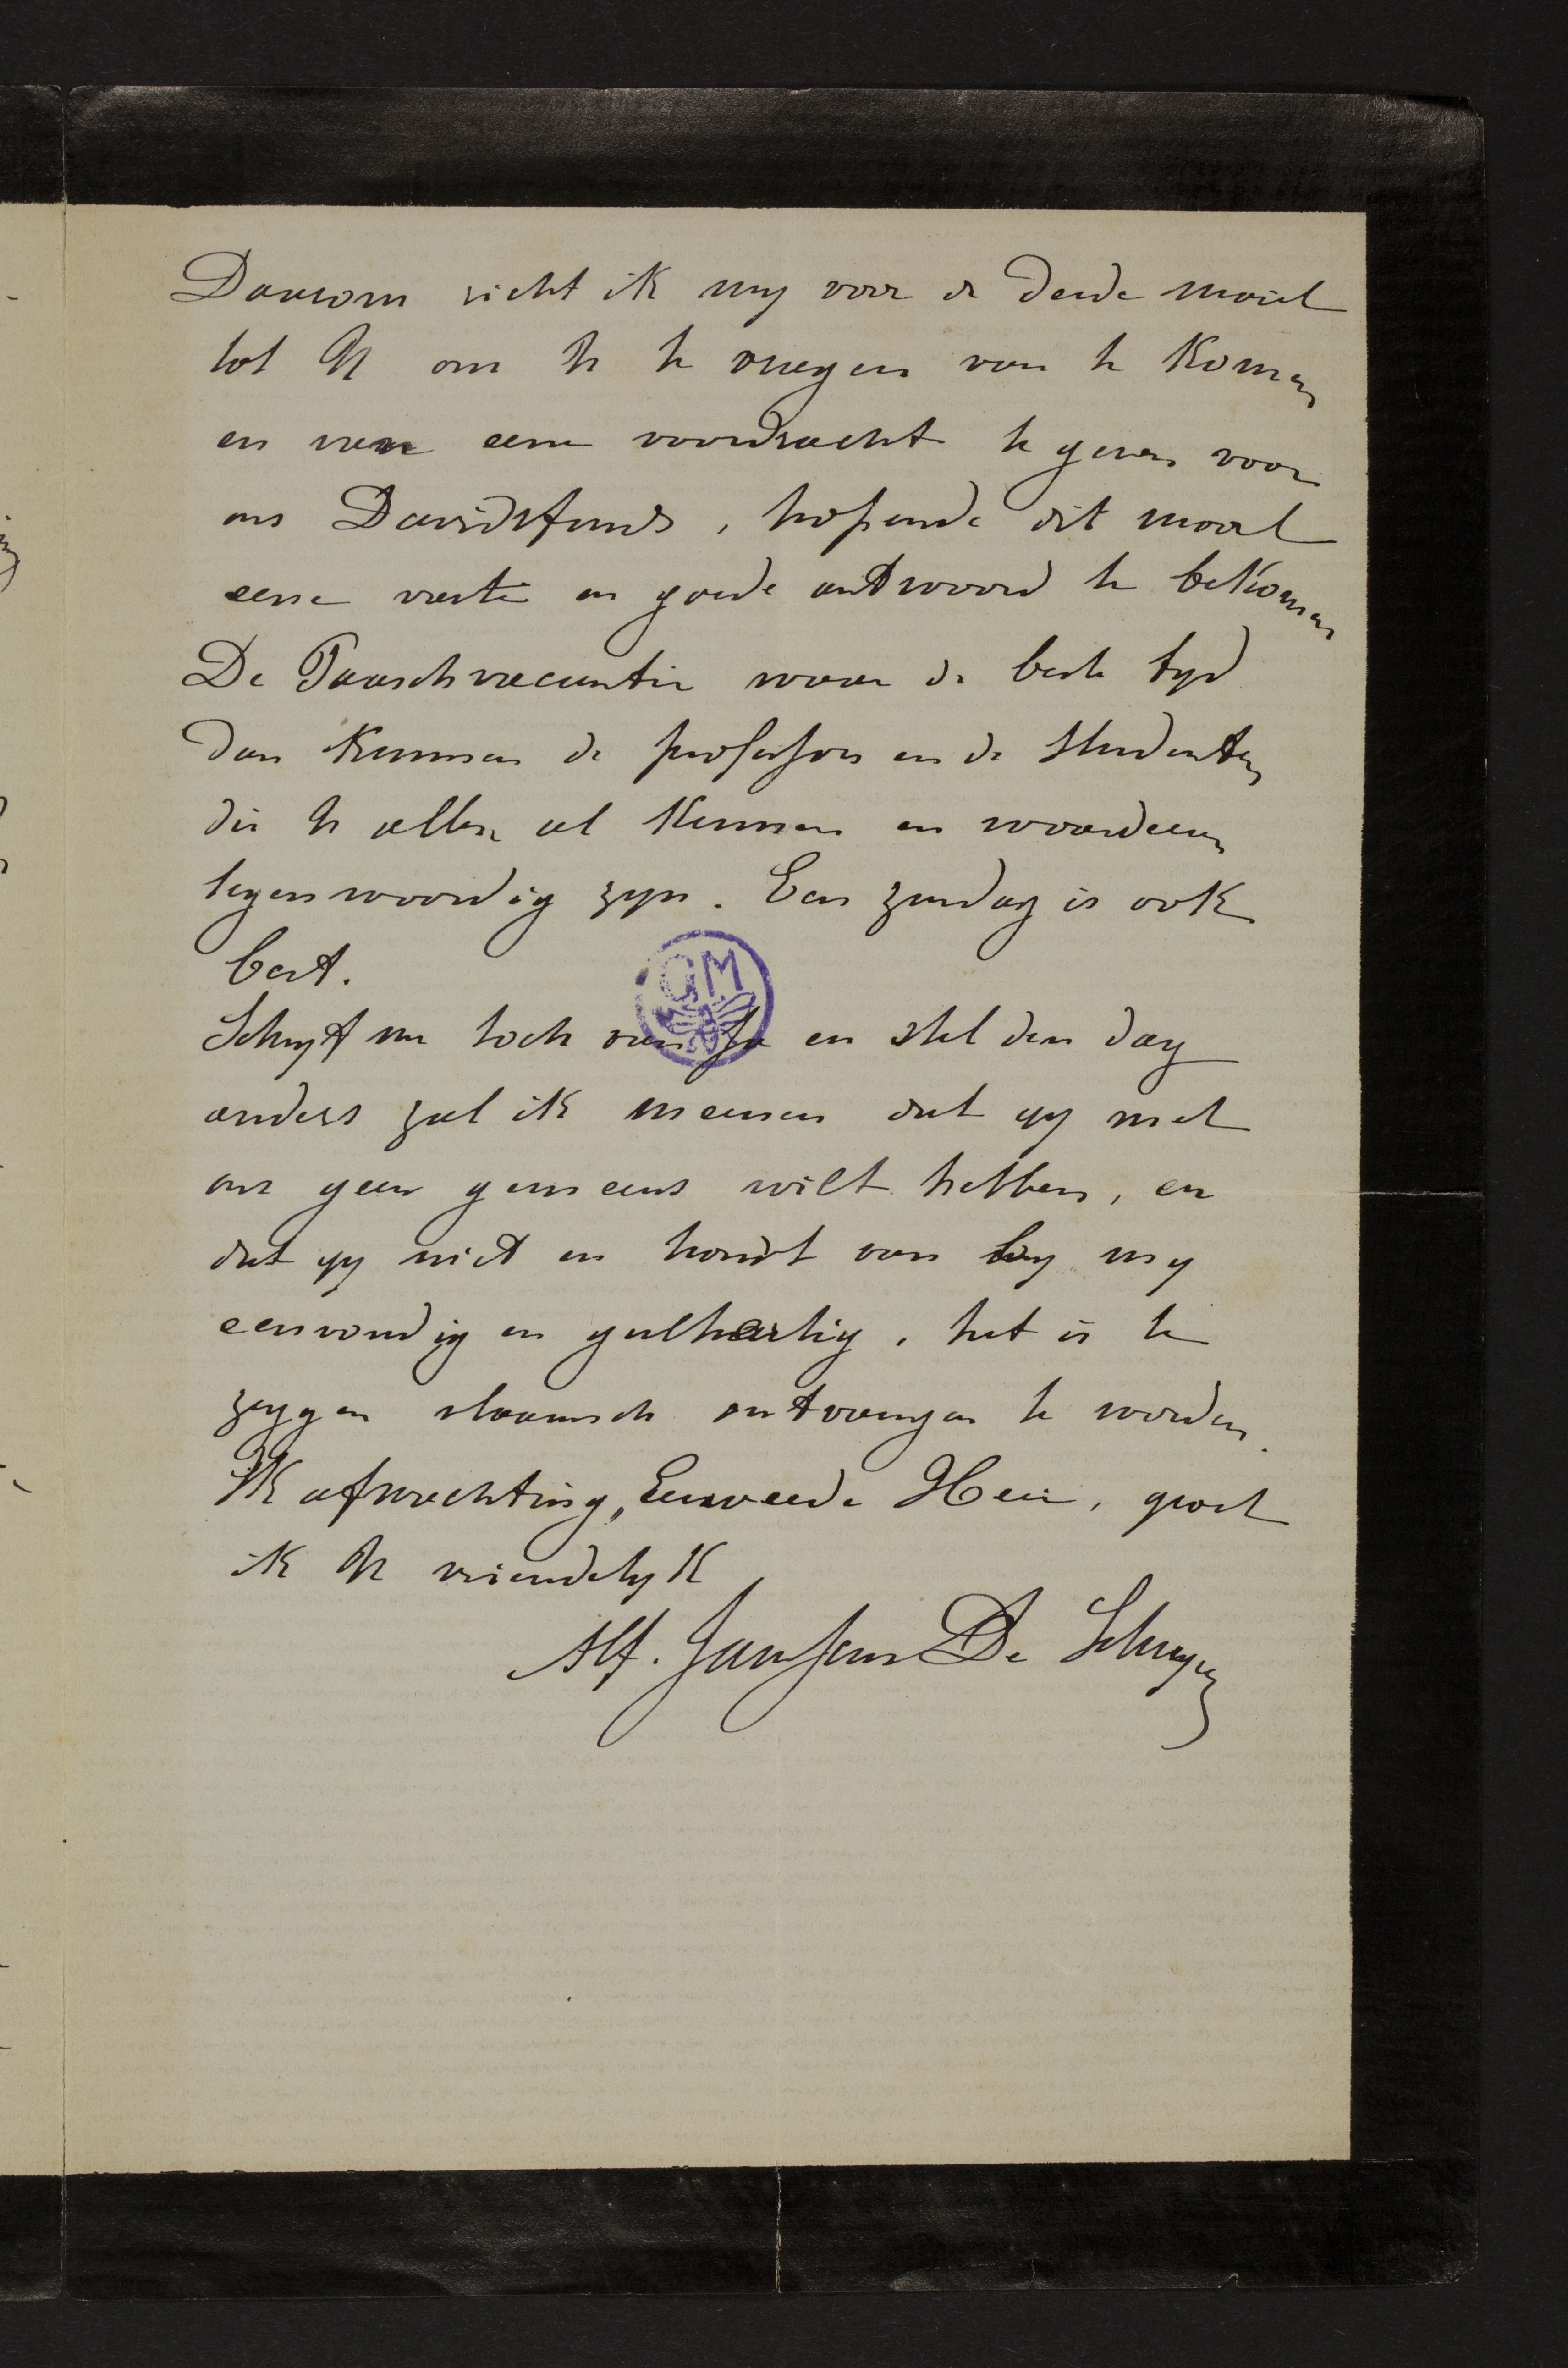 Daarom richt ik my voor de derde maal
tot U om U te vragen van te komen
en van eene voordracht te geven voor
ons Davidsfonds, hopende dit maal
eene vaste en goede antwoord te bekomen
De Paaschvacantie waar de beste tyd
dan kunnen de professors en de studenten
die U allen al kennen en waardeeren
tegenwoordig zyn. Een zondag is ook
best.
GM
Schryft me toch van ja en stel den dag
anders zal ik meenen dat gy met
ons geen gemeens wilt hebben, en
dat gy niet en houdt van by my
eenvoudig en gulhartig, het is te
zeggen vlaamsch ontvangen te worden.
In afwachting, Eerweerde Heer, groet
ik U vriendelyk
Alf. Janssens De Schryver